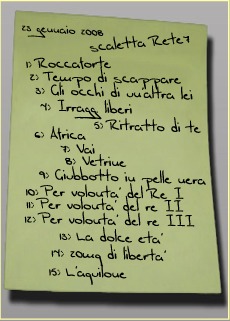 23 gennaio 2008
scaletta Rete7
1) Roccaforte
2) Tempo di scappare
3) Gli occhi di un'altra lei
4) Irragg liberi
5) Ritratto di te
6) Africa
7) Vai
8) Vetrine
9) Giubbotto in pelle nera
10) Per volonta' del Re I
11) Per volonta' del re II
12) Per volonta' del re III
13) La dolce eta'
14) 20mg di liberta'
15) L'aquilone